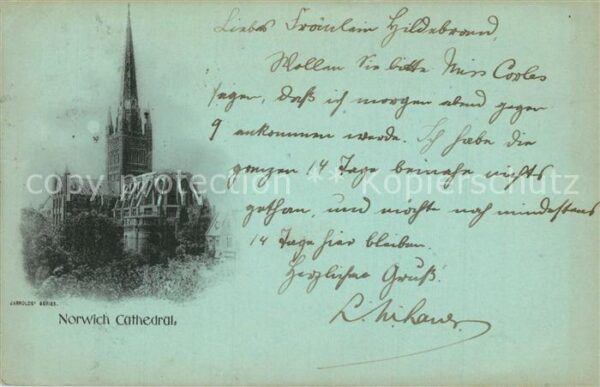 Liebes Fräulein Hildebrand,
Wollen Sie bitte Miss Corles
sagen, daß ich morgen abend gegen
9 ankommen werde. Ich habe die
ganzen 14 Tage beinahe nichts
gethan, und möchte noch mindestens
14 Tage hier bleiben.
Herzlicher Gruß.
copy protection ** Kopierschutz
JARROLDS' SERIES.
Norwich Cathedral,